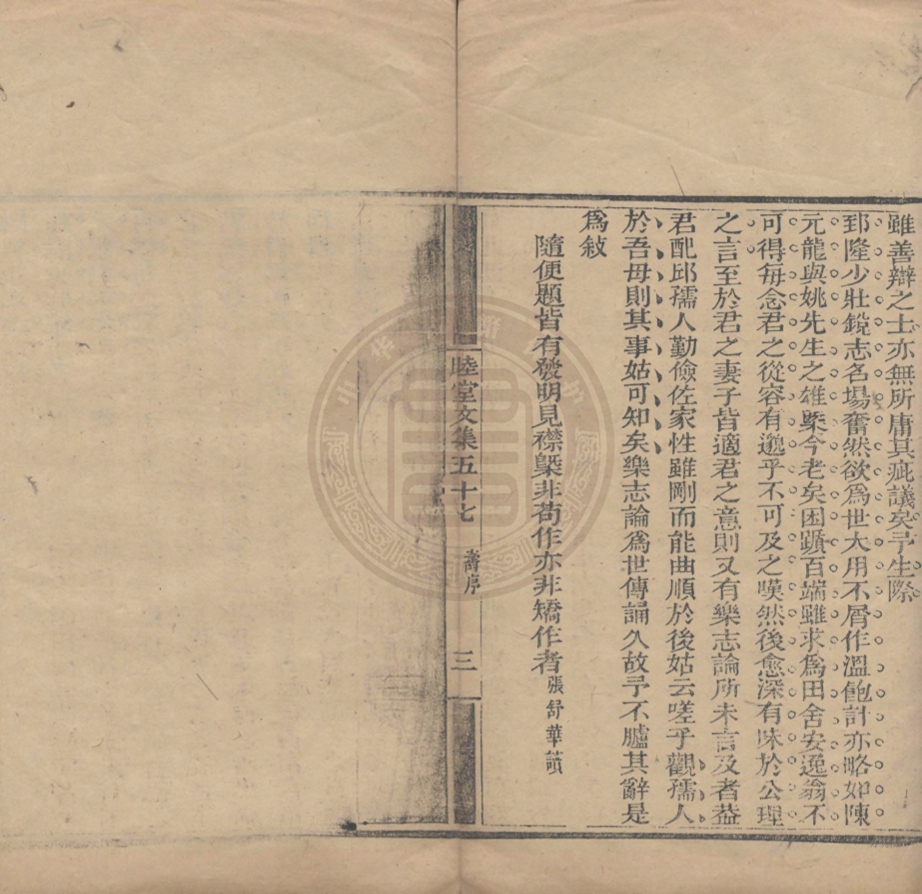 雖善辯之士亦無所庸其疵議矣予生際
郅隆少壯銳志名場奮然欲爲世大用不屑作溫飽計亦略如陳
元龍與姚先生之雄槩今老矣困躓百端雖求爲田舍安逸翁不
可得每念君之從容有邈乎不可及之嘆然後愈深有味於公理
之言至於君之妻子皆適君之意則又有樂志論所未言及者葢
君配邱孺人勤儉佐家性雖剛而能曲順於後姑云嗟乎觀孺人
於吾母則其事姑可知矣樂志論爲世傳誦久故予不臚其辭是
爲敍
隨便題皆有發明見襟槩非苟作亦非矯作者張舒華讀
睦堂文集五十七 壽序 三